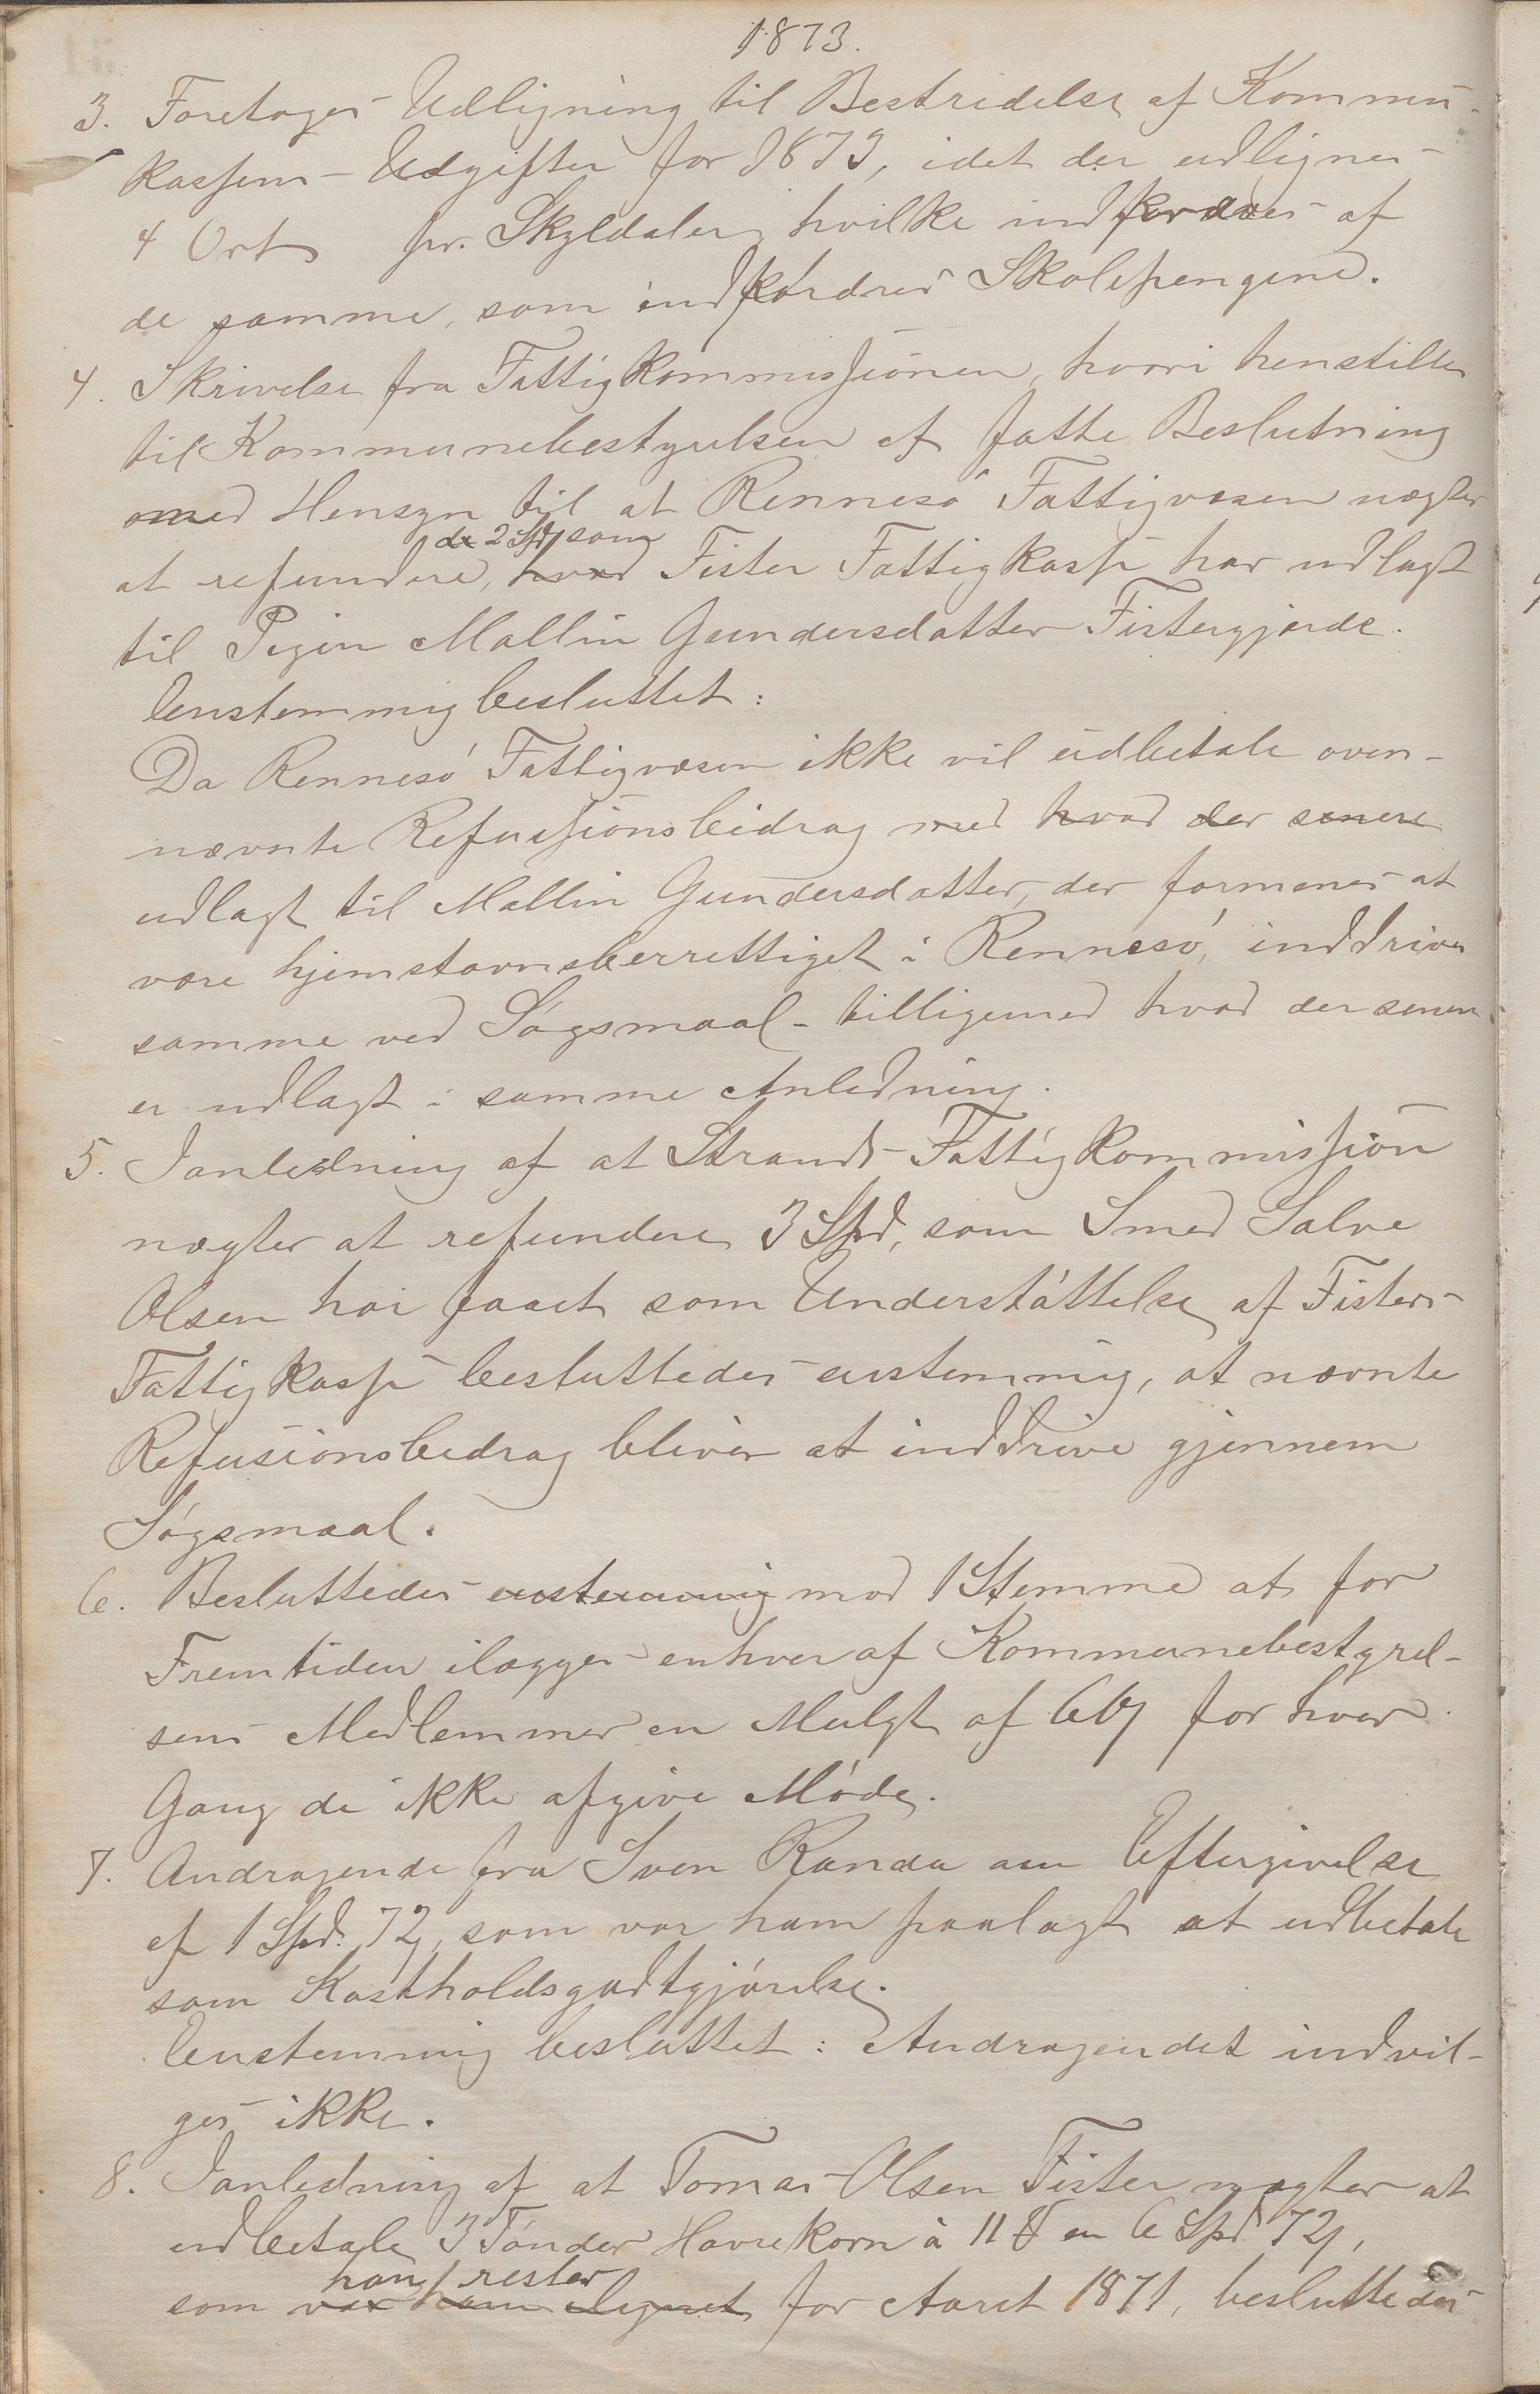 1873.
3. Foretoges Udligning til Bestridelse af Kommu-
kassens Udgifter for 1873, idet der udlignes
4 Ort pr. Skyldaler, hvilke indfordres af
de samme, som indfordrer Skolepengene.
4. Skrivelse fra Fattigkommissionen, hvori henstilles
til Kommunebestyrelsen at fatte Beslutning
med Hensyn til at Rennesø Fattigvæsen nægter
de 2 Spd som
at refundere, hvad Fister Fattigkasse har udlagt
til Pigen Mallin Gundersdatter Fistergjerde.
Enstemmig besluttet:
Da Rennesø Fattigvæsen ikke vil udbetale oven-
nævnte Refusionsbidrag med hvad der senere
udlagt til Mallin Gundersdatter, der formenes at
være hjemstavnsberrettiget i Rennesø, inddrives
samme ved Søgsmaal tilligemed hvad der senere
er udlagt i samme Anledning.
5. Ianledning af at Strands Fattigkommission
nægter at refundere 3 Spd, som Smed Salve
Olsen har faaet som Understøttelse af Fisters
Fattigkasse besluttedes enstemmig, at nævnte
Refusionsbidrag bliver at inddrive gjennem
Søgsmaal.
6. Besluttedes enstemmig mod 1 Stemme at for
Fremtiden ilægges enhver af Kommunebestyrel-
sens Medlemmer en Mulgt af 60 ß for hver
Gang de ikke afgive Møde.
7. Andragende fra Sven Randa om Eftergivelse
af 1 Spd. 72 ß, som var ham paalagt at udbetale
som Kostholdsgodtgjørelse.
Enstemmig besluttet: Andragendet indvil-
ges ikke.
8. Ianledning af at Tomas Olsen Fister nægter at
udbetale 3 Tønder Havrekorn à 11 ₰ er 6 Spd 72 ß,
han rester
som var ham lignet for Aaret 1871, besluttedes